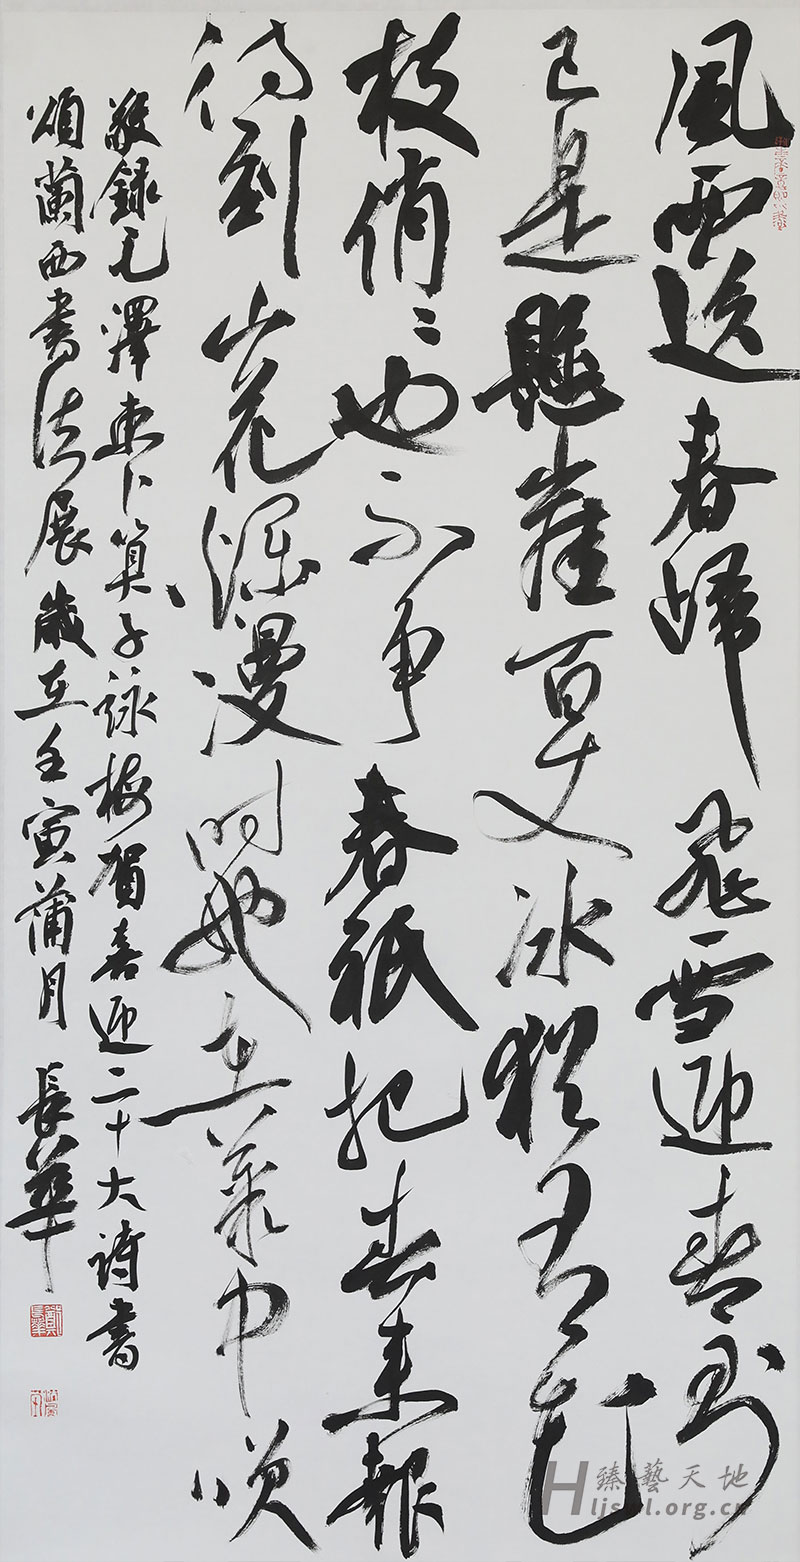 風雨送春歸飛雪迎春到
已是懸崖百丈冰猶有花
枝俏〻也不争春祇把春來報
待到山花爛漫時她在叢中咲
敬録毛澤東卜算子詠梅賀喜迎二十大詩書
頌蘭西書法展歲在壬寅蒲月 長華
臻藝天地